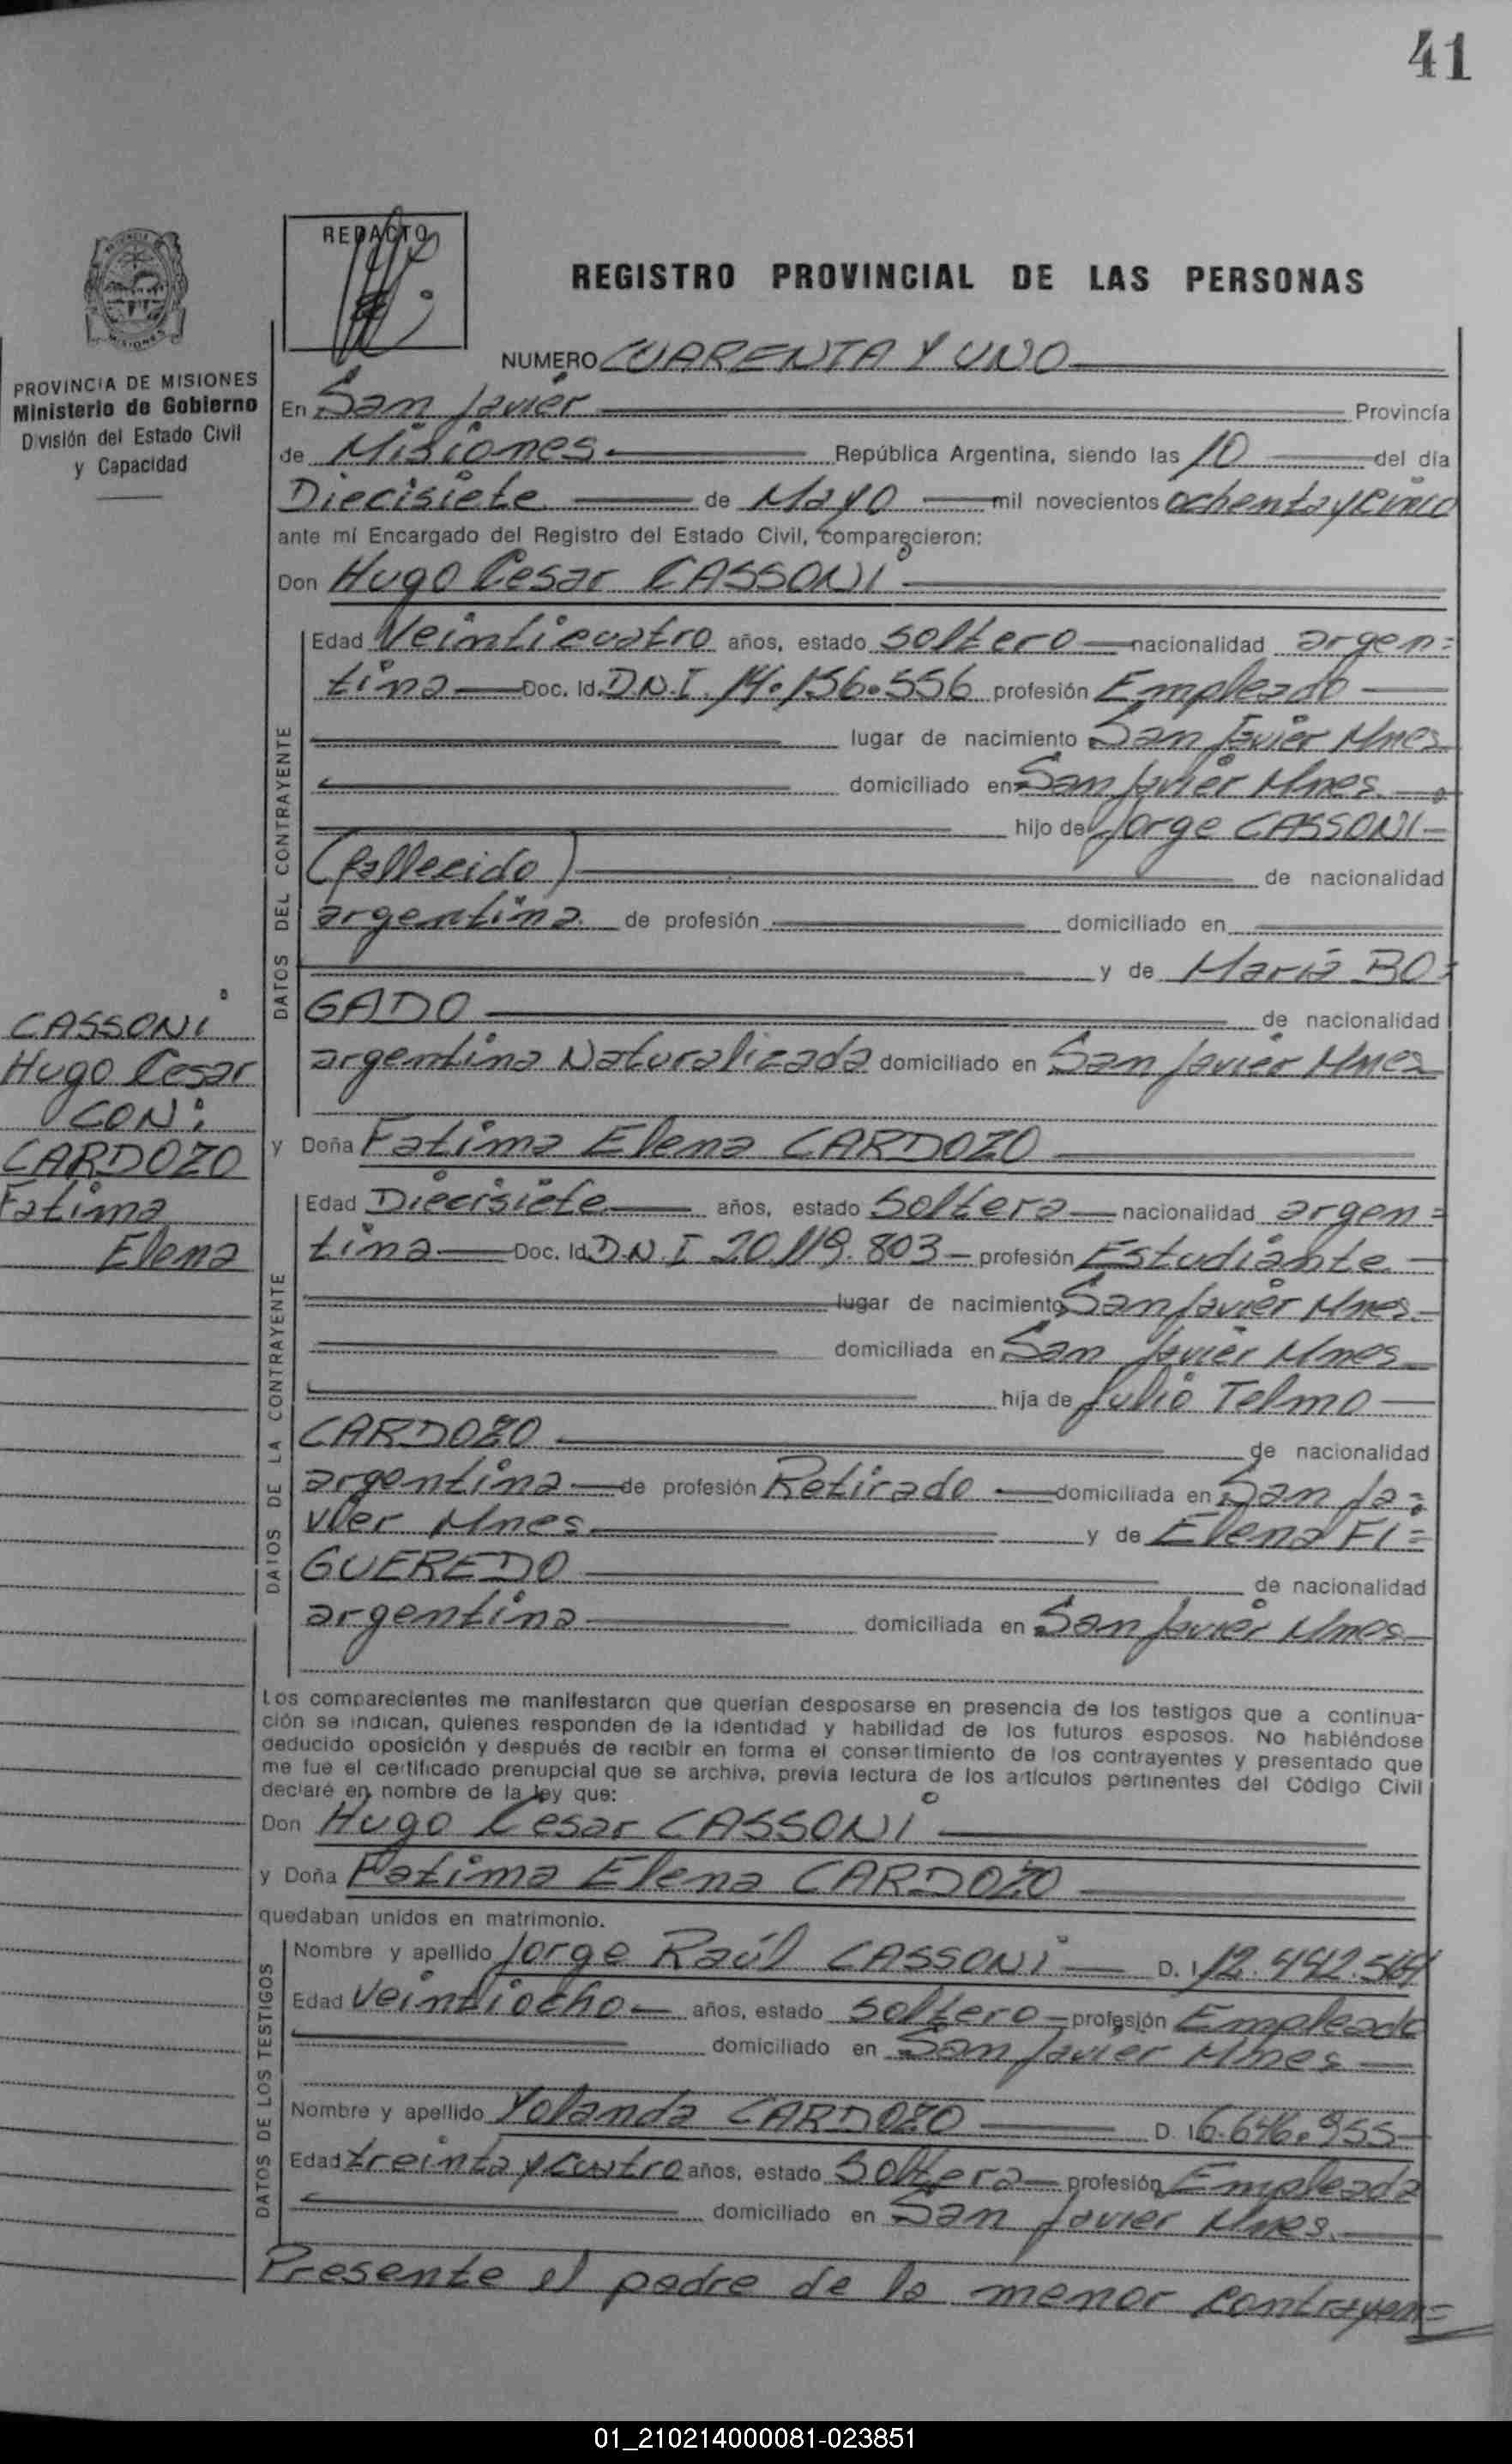 41
REDACTO
REGISTRO PROVINCIAL DE LAS PERSONAS
PROVINCIA DE MISIONES
Ministerio de Gobierno
División del Estado Civil
y Capacidad
NUMERO CUARENTA Y UNO
En San Javier Provincia
de Misiones República Argentina, siendo las 10 del día
Diecisiete de Mayo mil novecientos ochenta y cinco
ante mí Encargado del Registro del Estado Civil, comparecieron:
Don Hugo Cesar CASSONI
DATOS DEL CONTRAYENTE
Edad Veinticuatro años, estado soltero nacionalidad argen=
tina Doc. Id. D.N.I. 14.156.556 profesión Empleado
lugar de nacimiento San Javier Mnes
domiciliado en San Javier Mnes.
hijo de Jorge CASSONI
(fallecido) de nacionalidad
argentina de profesión domiciliado en
y de María BO=
GADO de nacionalidad
argentina Naturalizada domiciliado en San Javier Mnes
CASSONI
Hugo Cesar
CON:
CARDOZO
Fatima
Elena
y Doña Fatima Elena CARDOZO
DATOS DE LA CONTRAYENTE
Edad Diecisiete años, estado Soltera nacionalidad argen=
tina Doc. Id. D.N.I 20.119.803 profesión Estudiante
lugar de nacimiento San Javier Mnes.
domiciliada en San Javier Mnes
hija de Julio Telmo
CARDOZO de nacionalidad
argentina de profesión Retirado domiciliada en San Ja=
vier Mnes y de Elena FI=
GUEREDO de nacionalidad
argentina domiciliada en San Javier Mnes
Los comparecientes me manifestaron que querían desposarse en presencia de los testigos que a continua-
ción se indican, quienes responden de la identidad y habilidad de los futuros esposos. No habiéndose
deducido oposición y después de recibir en forma el consentimiento de los contrayentes y presentado que
me fue el certificado prenupcial que se archiva, previa lectura de los artículos pertinentes del Código Civil
declaré en nombre de la ley que:
Don Hugo Cesar CASSONI
y Doña Fatima Elena CARDOZO
quedaban unidos en matrimonio.
DATOS DE LOS TESTIGOS
Nombre y apellido Jorge Raúl CASSONI D. I. 12.442.564
Edad Veintiocho años, estado soltero profesión Empleado
domiciliado en San Javier Mnes
Nombre y apellido Yolanda CARDOZO D. I. 6.646.955
Edad treinta y cuatro años, estado Soltera profesión Empleada
domiciliado en San Javier Mnes.
Presente el padre de la menor contrayen=
01_210214000081-023851